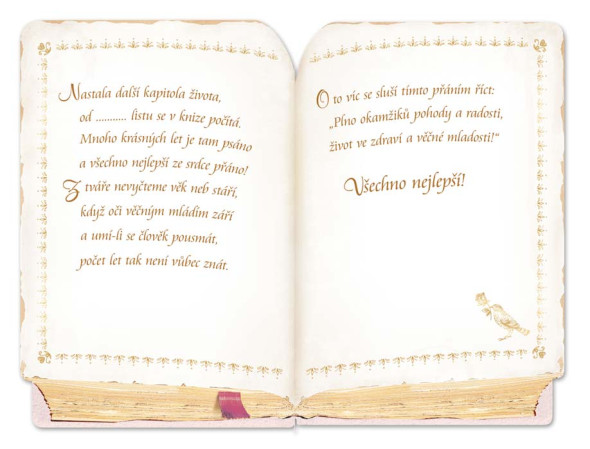 Nastala další kapitola života,
od ........... listu se v knize počítá.
Mnoho krásných let je tam psáno
a všechno nejlepší ze srdce přáno!
Z tváře nevyčteme věk neb stáří,
když oči věčným mládím září
a umí-li se člověk pousmát,
počet let tak není vůbec znát.
O to víc se sluší tímto přáním říct:
„Plno okamžiků pohody a radosti,
život ve zdraví a věčné mladosti!“
Všechno nejlepší!